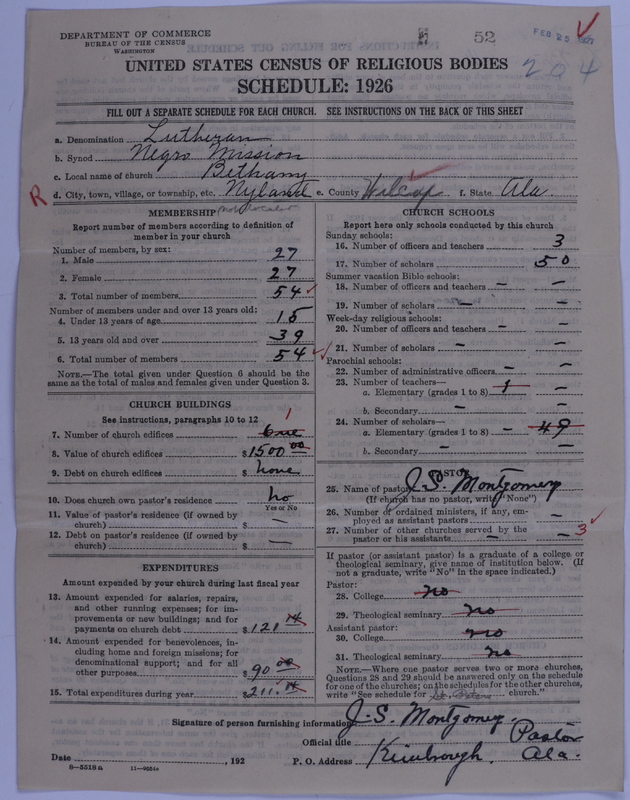 DEPARTMENT OF COMMERCE
BUREAU OF THE CENSUS
WASHINGTON
52
FEB 25 1927
204
UNITED STATES CENSUS OF RELIGIOUS BODIES
SCHEDULE: 1926
FILL OUT A SEPARATE SCHEDULE FOR EACH CHURCH. SEE INSTRUCTIONS ON THE BACK OF THIS SHEET
a. Denomination Lutheran
b. Synod Negro Mission
c. Local name of church Bethany
R d. City, town, village, or township, etc. Nyland e. County Wilcox f. State Ala.
MEMBERSHIP
Report number of members according to definition of
member in your church
Number of members, by sex:
1. Male 27
2. Female 27
3. Total number of members 54
Number of members under and over 13 years old:
4. Under 13 years of age 15
5. 13 years old and over 39
6. Total number of members 54
NOTE.—The total given under Question 6 should be
same as the total of males and females given under Question 3.
CHURCH BUILDINGS
See instructions, paragraphs 10 to 12
1
7. Number of church edifices one
8. Value of church edifices $1500 00
9. Debt on church edifices $ none
10. Does church own pastor's residence no
Yes or No
11. Value of pastor's residence (if owned by
church) $ —
12. Debt on pastor's residence (if owned by
church) $ —
EXPENDITURES
Amount expended by your church during last fiscal year
13. Amount expended for salaries, repairs,
and other running expenses; for im-
provements or new buildings; and for
payments on church debt $121 14
14. Amount expended for benevolences, in-
cluding home and foreign missions; for
denominational support; and for all
other purposes $90 00
15. Total expenditures during year $211.14
CHURCH SCHOOLS
Report here only schools conducted by this church
Sunday schools:
16. Number of officers and teachers 3
17. Number of scholars 50
Summer vacation Bible schools:
18. Number of officers and teachers — —
19. Number of scholars — —
Week-day religious schools:
20. Number of officers and teachers — —
21. Number of scholars — —
Parochial schools:
22. Number of administrative officers — —
23. Number of teachers—
a. Elementary (grades 1 to 8) 1 —
b. Secondary — —
24. Number of scholars—
a. Elementary (grades 1 to 8) — 49
b. Secondary — —
PASTOR
25. Name of pastor J. S. Montgomery
(If church has no pastor, write "None")
26. Number of ordained ministers, if any, em-
ployed as assistant pastors — —
27. Number of other churches served by the
pastor or his assistants — — 3
If pastor (or assistant pastor) is a graduate of a college or
theological seminary, give name of institution below. (If
not a graduate, write "No" in the space indicated.)
Pastor:
28. College no
29. Theological seminary no
Assistant pastor:
30. College no
31. Theological seminary no
NOTE.—Where one pastor serves two or more churches,
Questions 28 and 29 should be answered only on the schedule
for one of the churches; on the schedules for the other churches,
write "See schedule for church."
Signature of person furnishing information J. S. Montgomery.
Official title Pastor
Date , 192 P. O. Address Kimbrough. Ala.
8—5518a 11—9054a